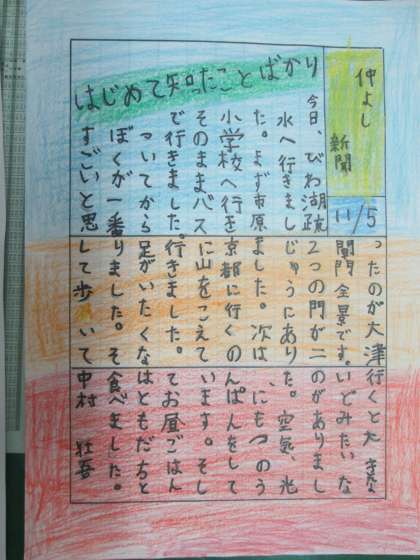 仲よし
新聞
11/5
はじめて知ったことばかり
今日、びわ湖疏
水へ行きまし
た。まず市原
小学校へ行き
そのままバス
で行きました。
ついてから
ぼくが一番
すごいと思
ったのが大津
閘門全景です。
2つの門が二
じゅうにあり
ました。次は
京都に行くの
に山をこえて
行きました。
足がいたくな
りました。そ
して歩いて
行くと大きな
いどみたいな
のがありまし
た。空気、光
、にもつのう
んぱんをして
います。そし
てお昼ごはん
はともだちと
食べました。
中村 壮吾